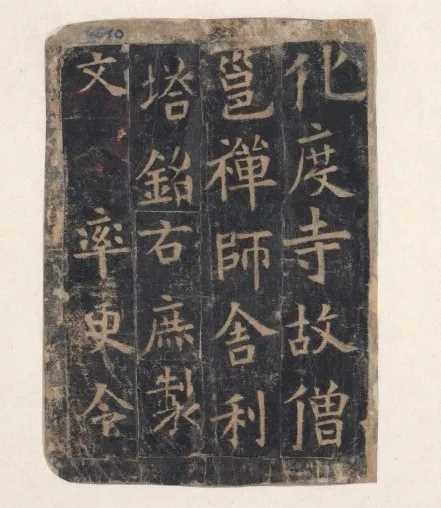 化度寺故僧
邕禪師舍利
塔銘右庶製
文 率更令